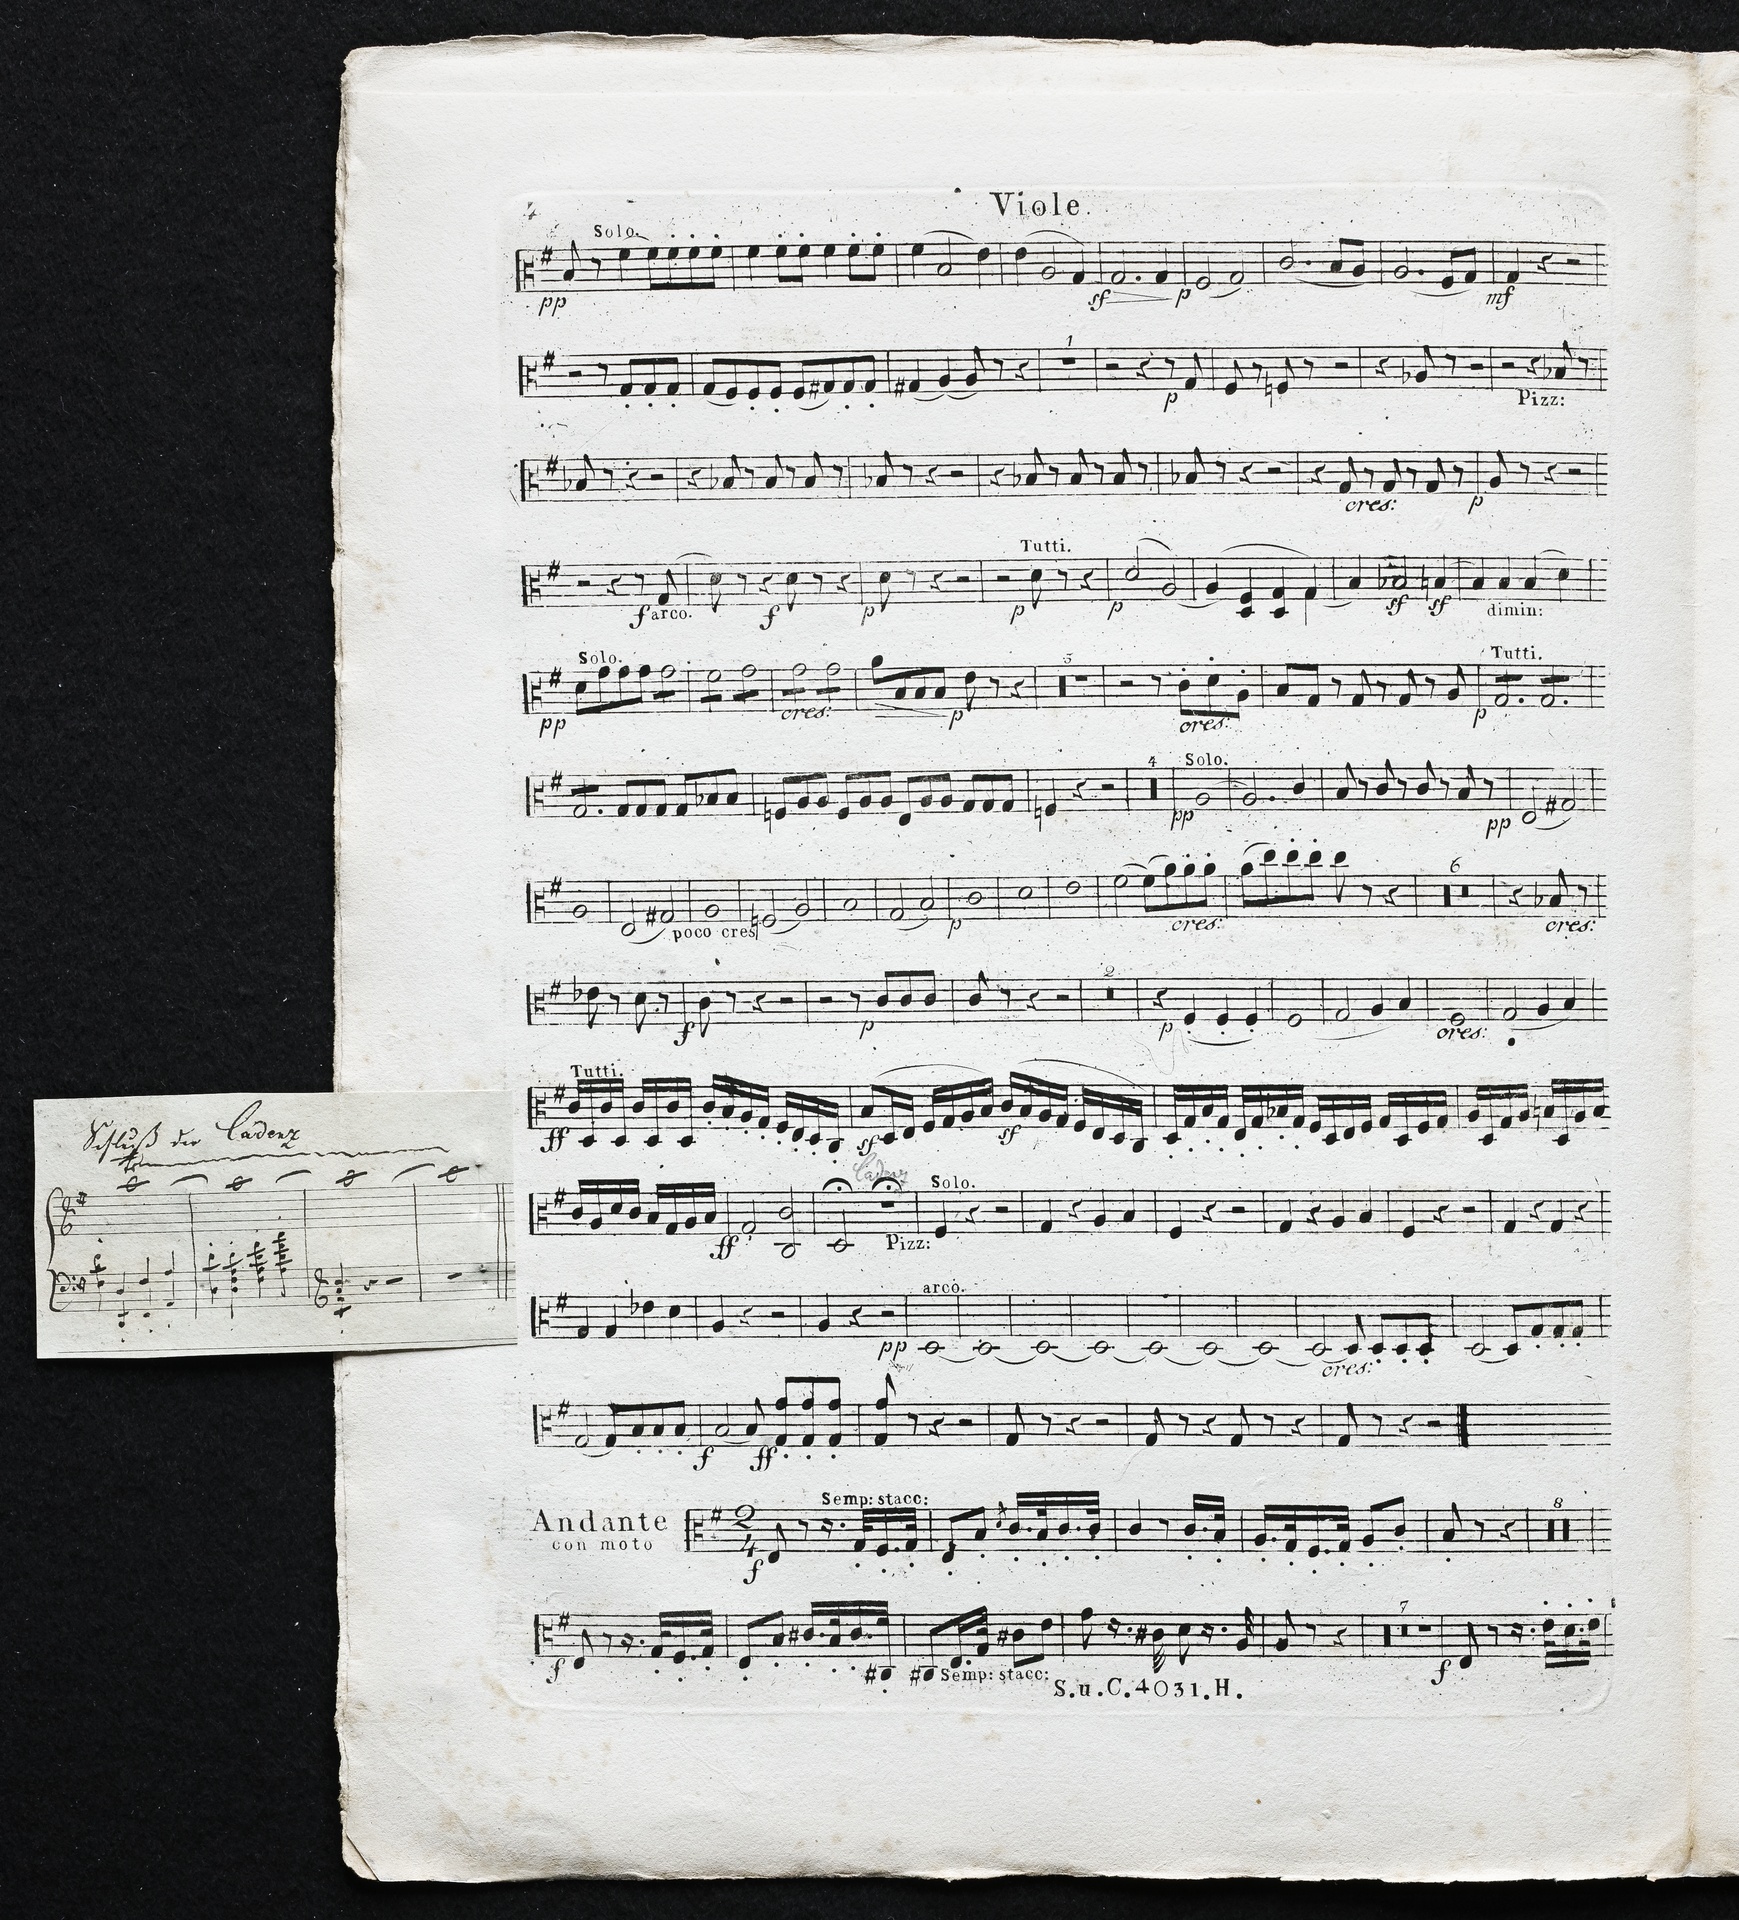 4
Viole.
Solo.
pp sf p mf
1
p Pizz:
cres: p
Tutti.
f arco. f p p p sf sf dimin:
Solo. 5 Tutti.
pp cres: p cres: p
4 Solo.
pp pp
6
poco cres p cres: cres:
2
f p p cres:
Tutti.
ff sf sf
Schluß der Cadenz
tr
Cadenz
Solo.
ff Pizz:
arco.
pp cres:
f ff
Semp: stacc: 8
Andante 2 4
con moto
f
7
f Semp: stacc: f
S.u.C.4031.H.